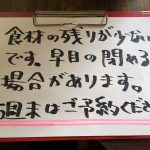 食材の残りが少ない
です。早目の閉める
場合があります。
週末はご予約くださ